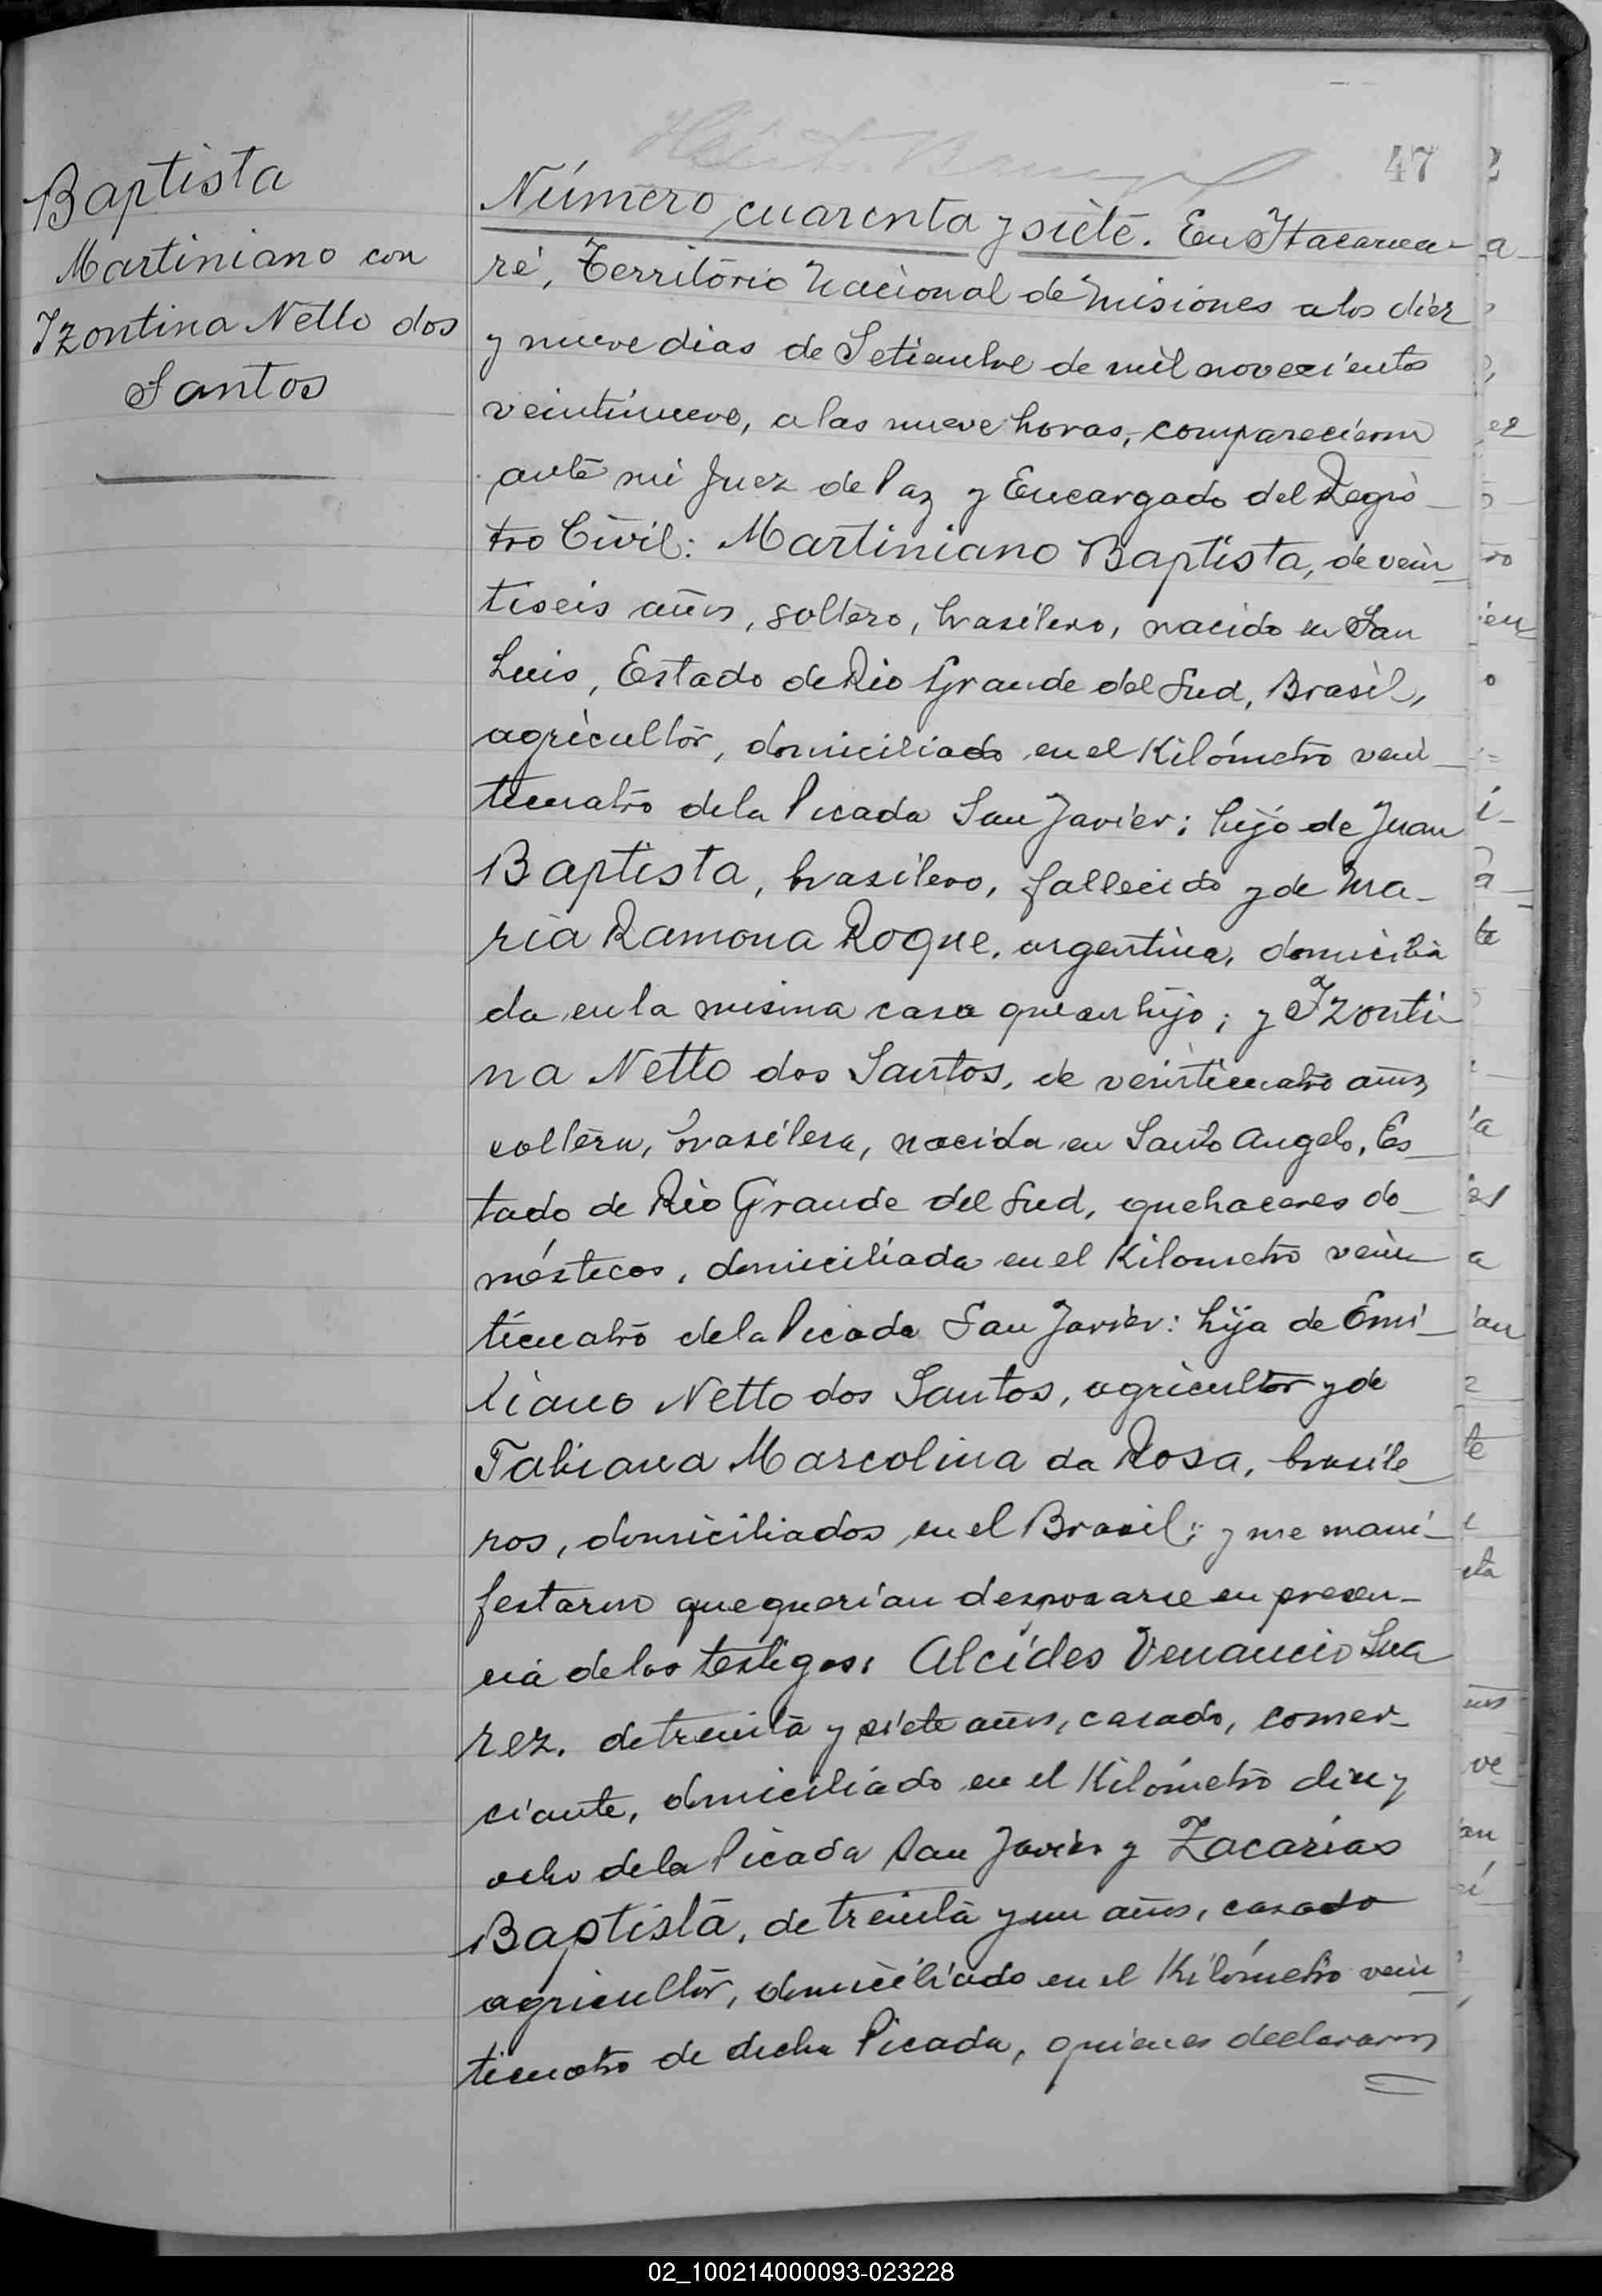 47
Baptista
Martiniano con
Izontina Netto dos
Santos
Número cuarenta y siete. En Itacarua-
ré, Território Nacional de Misiones a los diez
y nueve dias de Setiembre de mil novecientos
veintinueve, a las nueve horas, comparecieron
ante mi Juez de Paz y Encargado del Regis-
tro Civil: Martiniano Baptista, de vein-
tiseis años, soltero, brasilero, nacido en San
Luis, Estado de Rio Grande del Sud, Brasil,
agricultor, domiciliado en el Kilómetro vein-
ticuatro de la Picada San Javier; hijo de Juan
Baptista, brasilero, fallecido y de Ma-
ria Ramona Roque, argentina, domicilia
da en la misma casa que su hijo; y Izonti-
na Netto dos Santos, de veinticuatro años
soltera, brasilera, nacida en Santo Angelo, Es-
tado de Rio Grande del Sud, quehaceres do-
mésticos, domiciliada en el Kilometro vein-
ticuatro de la Picada San Javier: hija de Emi-
liano Netto dos Santos, agricultor y de
Fabiana Marcolina da Rosa, brasile-
ros, domiciliados en el Brasil; y me mani-
festaron que querian desposarse en presen-
cia de los testigos: Alcídes Venancio Sua
rez, de treinta y siete años, casado, comer-
ciante, domiciliado en el Kilómetro diez y
ocho de la Picada San Javier y Zacarias
Baptista, de treinta y un años, casado
agricultor, domiciliado en el Kilómetro vein-
ticuatro de dicha Picada, quienes declararon
02_100214000093-023228